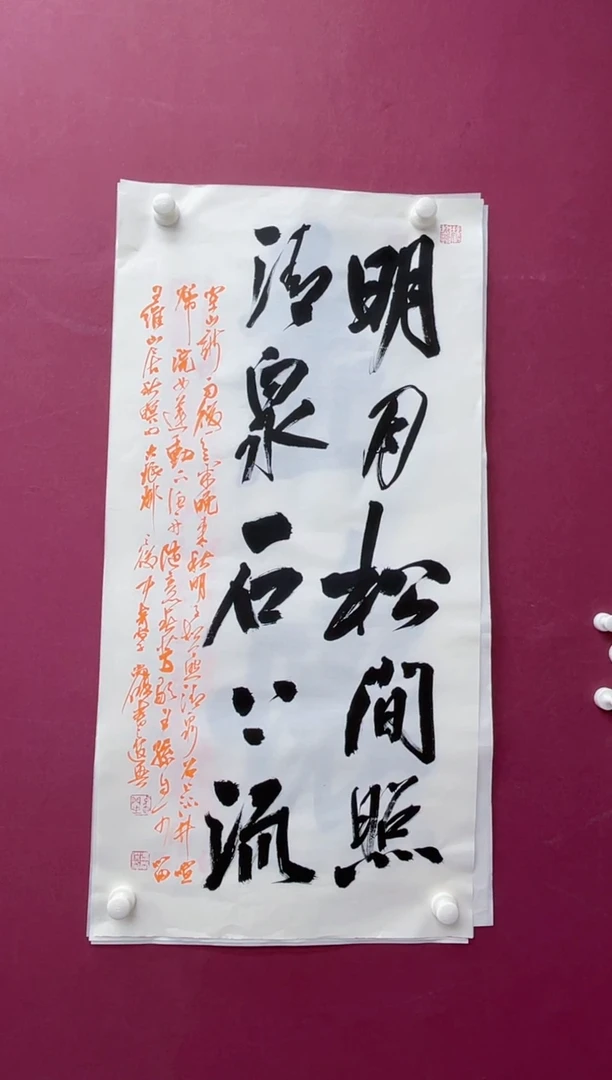 明月松间照
清泉石上流
空山新雨後天氣晚来秋明月松间照清泉石上流竹喧
歸浣女蓮動下渔舟隨意春芳歇王孫自可留
王維山居秋暝